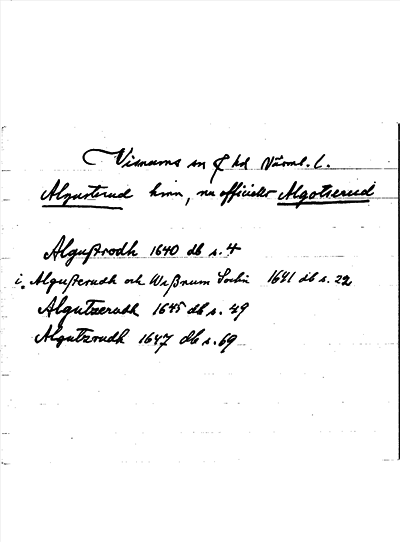 Visnums sn
hd Värml. l.
Algusterud hmn, nu officiellt Algotserud
Algußrodh 1640 db s. 4
i. Algußerudh och Wißnum Sochn 1641 db s. 22
Algutzerudh 1645 db s. 49
Algutzrudh 1647 db s. 69